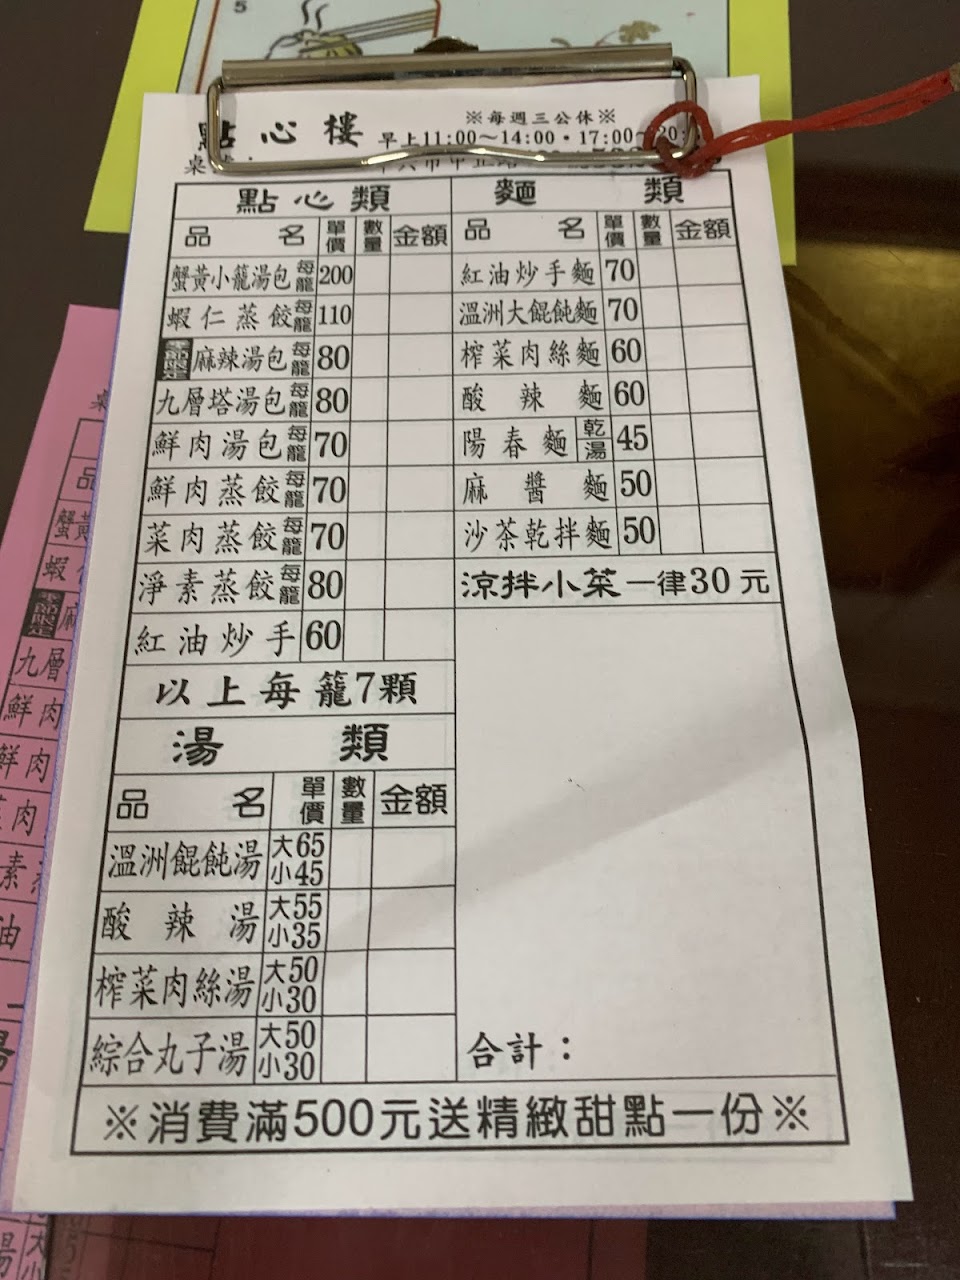 5
點心樓
※每週三公休※
早上11:00～14:00・17:00～20:
桌
點心類
品名 單價 數量 金額
蟹黃小籠湯包 每籠 200
蝦仁蒸餃 每籠 110
季節限定 麻辣湯包 每籠 80
九層塔湯包 每籠 80
鮮肉湯包 每籠 70
鮮肉蒸餃 每籠 70
菜肉蒸餃 每籠 70
淨素蒸餃 每籠 80
紅油炒手 60
以上每籠7顆
麵類
品名 單價 數量 金額
紅油炒手麵 70
溫洲大餛飩麵 70
榨菜肉絲麵 60
酸辣麵 60
陽春麵 乾湯 45
麻醬麵 50
沙茶乾拌麵 50
涼拌小菜一律30元
湯類
品名 單價 數量 金額
溫洲餛飩湯 大65 小45
酸辣湯 大55 小35
榨菜肉絲湯 大50 小30
綜合丸子湯 大50 小30
合計：
※消費滿500元送精緻甜點一份※
品
蟹黃
蝦
季節限定 麻
九層
鮮肉
鮮肉
肉
素
油
大
小